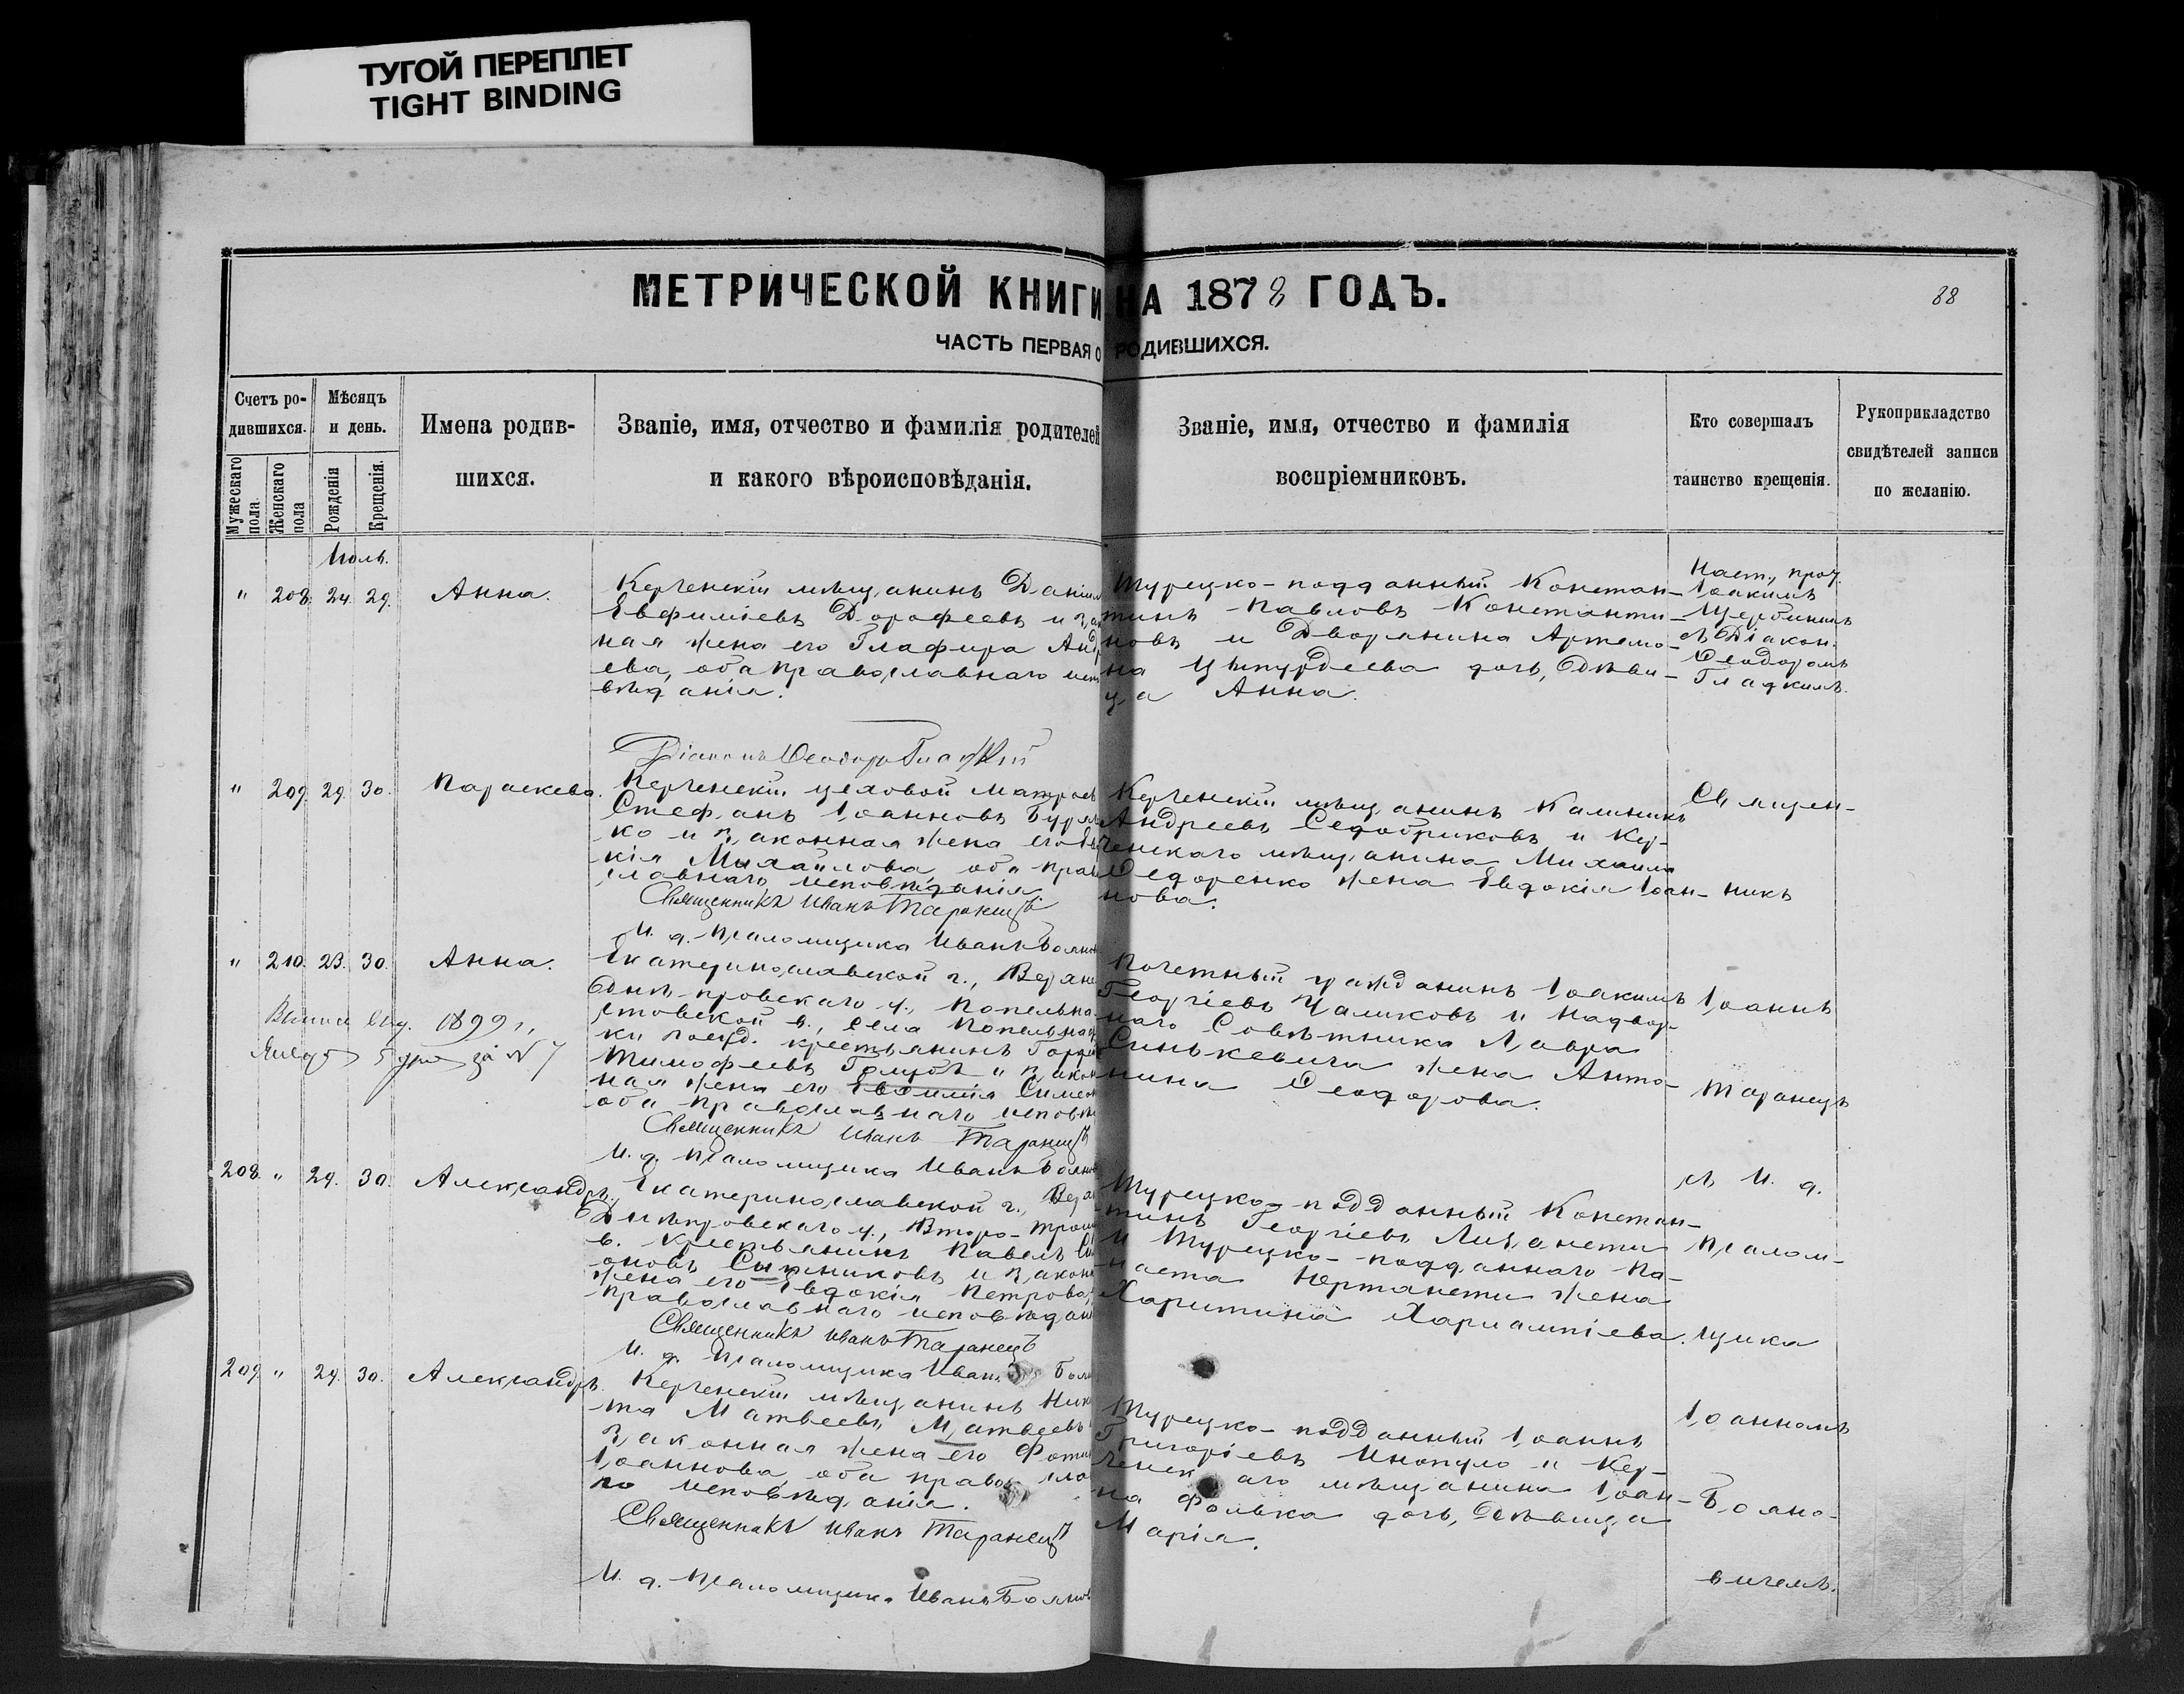 ТУГОЙ ПЕРЕПЛЕТ
TIGHT BINDING
МЕТРИЧЕСКОЙ КНИГИ НА 1878 ГОДЪ.
88
ЧАСТЬ ПЕРВАЯ О РОДИВШИХСЯ.
Счетъ ро-
дившихся.
Мужескаго пола
Женскаго пола
Мѣсяцъ
и день.
Рожденія
Крещенія.
Имена родив-
шихся.
Званіе, имя, отчество и фамилія родителей
и какого вѣроисповѣданія.
Званіе, имя, отчество и фамилія
воспріемниковъ.
Кто совершалъ
таинство крещенія.
Рукоприкладство
свидѣтелей записи
по желанію.
Іюль.
" 208. 24. 29. Анна.
Керченскій мѣщанинъ Даніил
Евфиміевъ Дорофеевъ и зак
ная жена его Глафира Андр
ева, оба православнаго исп
вѣданія.
Діаконъ Ѳеодоръ Гладкій
Турецко-подданный Констан-
тинъ Павловъ Константи-
новъ и Дворянина Артемо-
на Цытурдеева дочь, дѣви-
ца Анна.
Наст., прот.
Іоакимъ
Щербининъ
съ Діакон.
Ѳеодоромъ
Гладкимъ.
" 209. 29. 30. Параскева.
Керченскій цеховой Матросъ
Стефанъ Іоанновъ Бурл
ко и законная жена его Ев
кія Михайлова, оба прав
славнаго исповѣданія
Священникъ Иванъ Таранецъ
И. д. псаломщика Иванъ Боянов
Керченскій мѣщанинъ Калиникъ
Андреевъ Седобриковъ и Кер-
ченскаго мѣщанина Михаила
Ѳедоренко жена Евдокія Іоан-
нова.
Священ-
никъ
" 210. 23. 30. Анна.
1899 г.
за № 7
Екатеринославской г., Верхне
днѣпровскаго у., Попельна
стовской в., села Попельнас
ки посѣд. крестьянинъ Горд
Тимофеевъ Голубъ и закон
ная жена его Евфимія Симео
оба православнаго исповѣ
Священникъ Иванъ Таранецъ
И. д. псаломщика Иванъ Боянов
Почетный гражданинъ Іоакимъ
Георгіевъ Чаликовъ и Надвор-
наго Совѣтника Лавра
Синькевича жена Анто-
нина Ѳеодорова.
Іоаннъ
Таранецъ
208. " 29. 30. Александръ.
Екатеринославской г., Верх
Днѣпровскаго у., Второ-Трои
в. крестьянинъ Павелъ Си
оновъ Сырниковъ и закон
жена его Евдокія Петрова,
православнаго исповѣдан
Священникъ Иванъ Таранецъ
И. д. псаломщика Иванъ Боян
Турецко-подданный Констан-
тинъ Георгіевъ Лизанети
и Турецко-подданнаго Па-
наета жена
Харитина Харлампіева.
съ И. д.
псалом-
щика
209. " 29. 30. Александръ.
Керченскій мѣщанинъ Ник
та Матвеевъ Матвеевъ
законная жена его Фоти
Іоаннова, оба правосла
го исповѣданія.
Священникъ Иванъ Таранецъ
И. д. псаломщика Иванъ Боянов
Турецко-подданный Іоаннъ
Григоріевъ Инопуло и Кер-
ченскаго мѣщанина Іоан-
на Фолька дочь, дѣвица
Марія.
Іоанномъ
Бояно-
вичемъ.